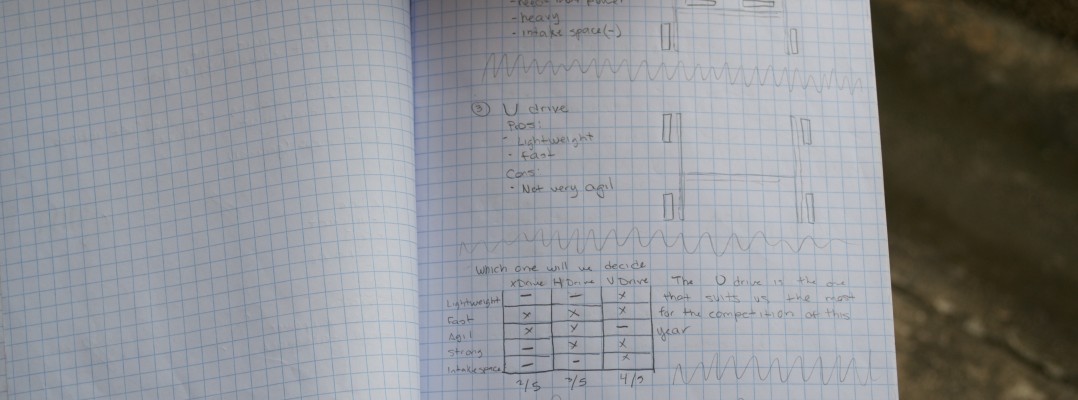 - heavy
- intake space(-)
③ U drive
Pros:
- Lightweight
- fast
Cons:
- Not very agil
Which one will we decide
x Drive H Drive U Drive
Lightweight — — x
Fast x x x
Agil x x —
Strong — x x
Intake space — - x
2/5 3/5 4/5
The U drive is the one
that suits us the most
for the competition of this
year